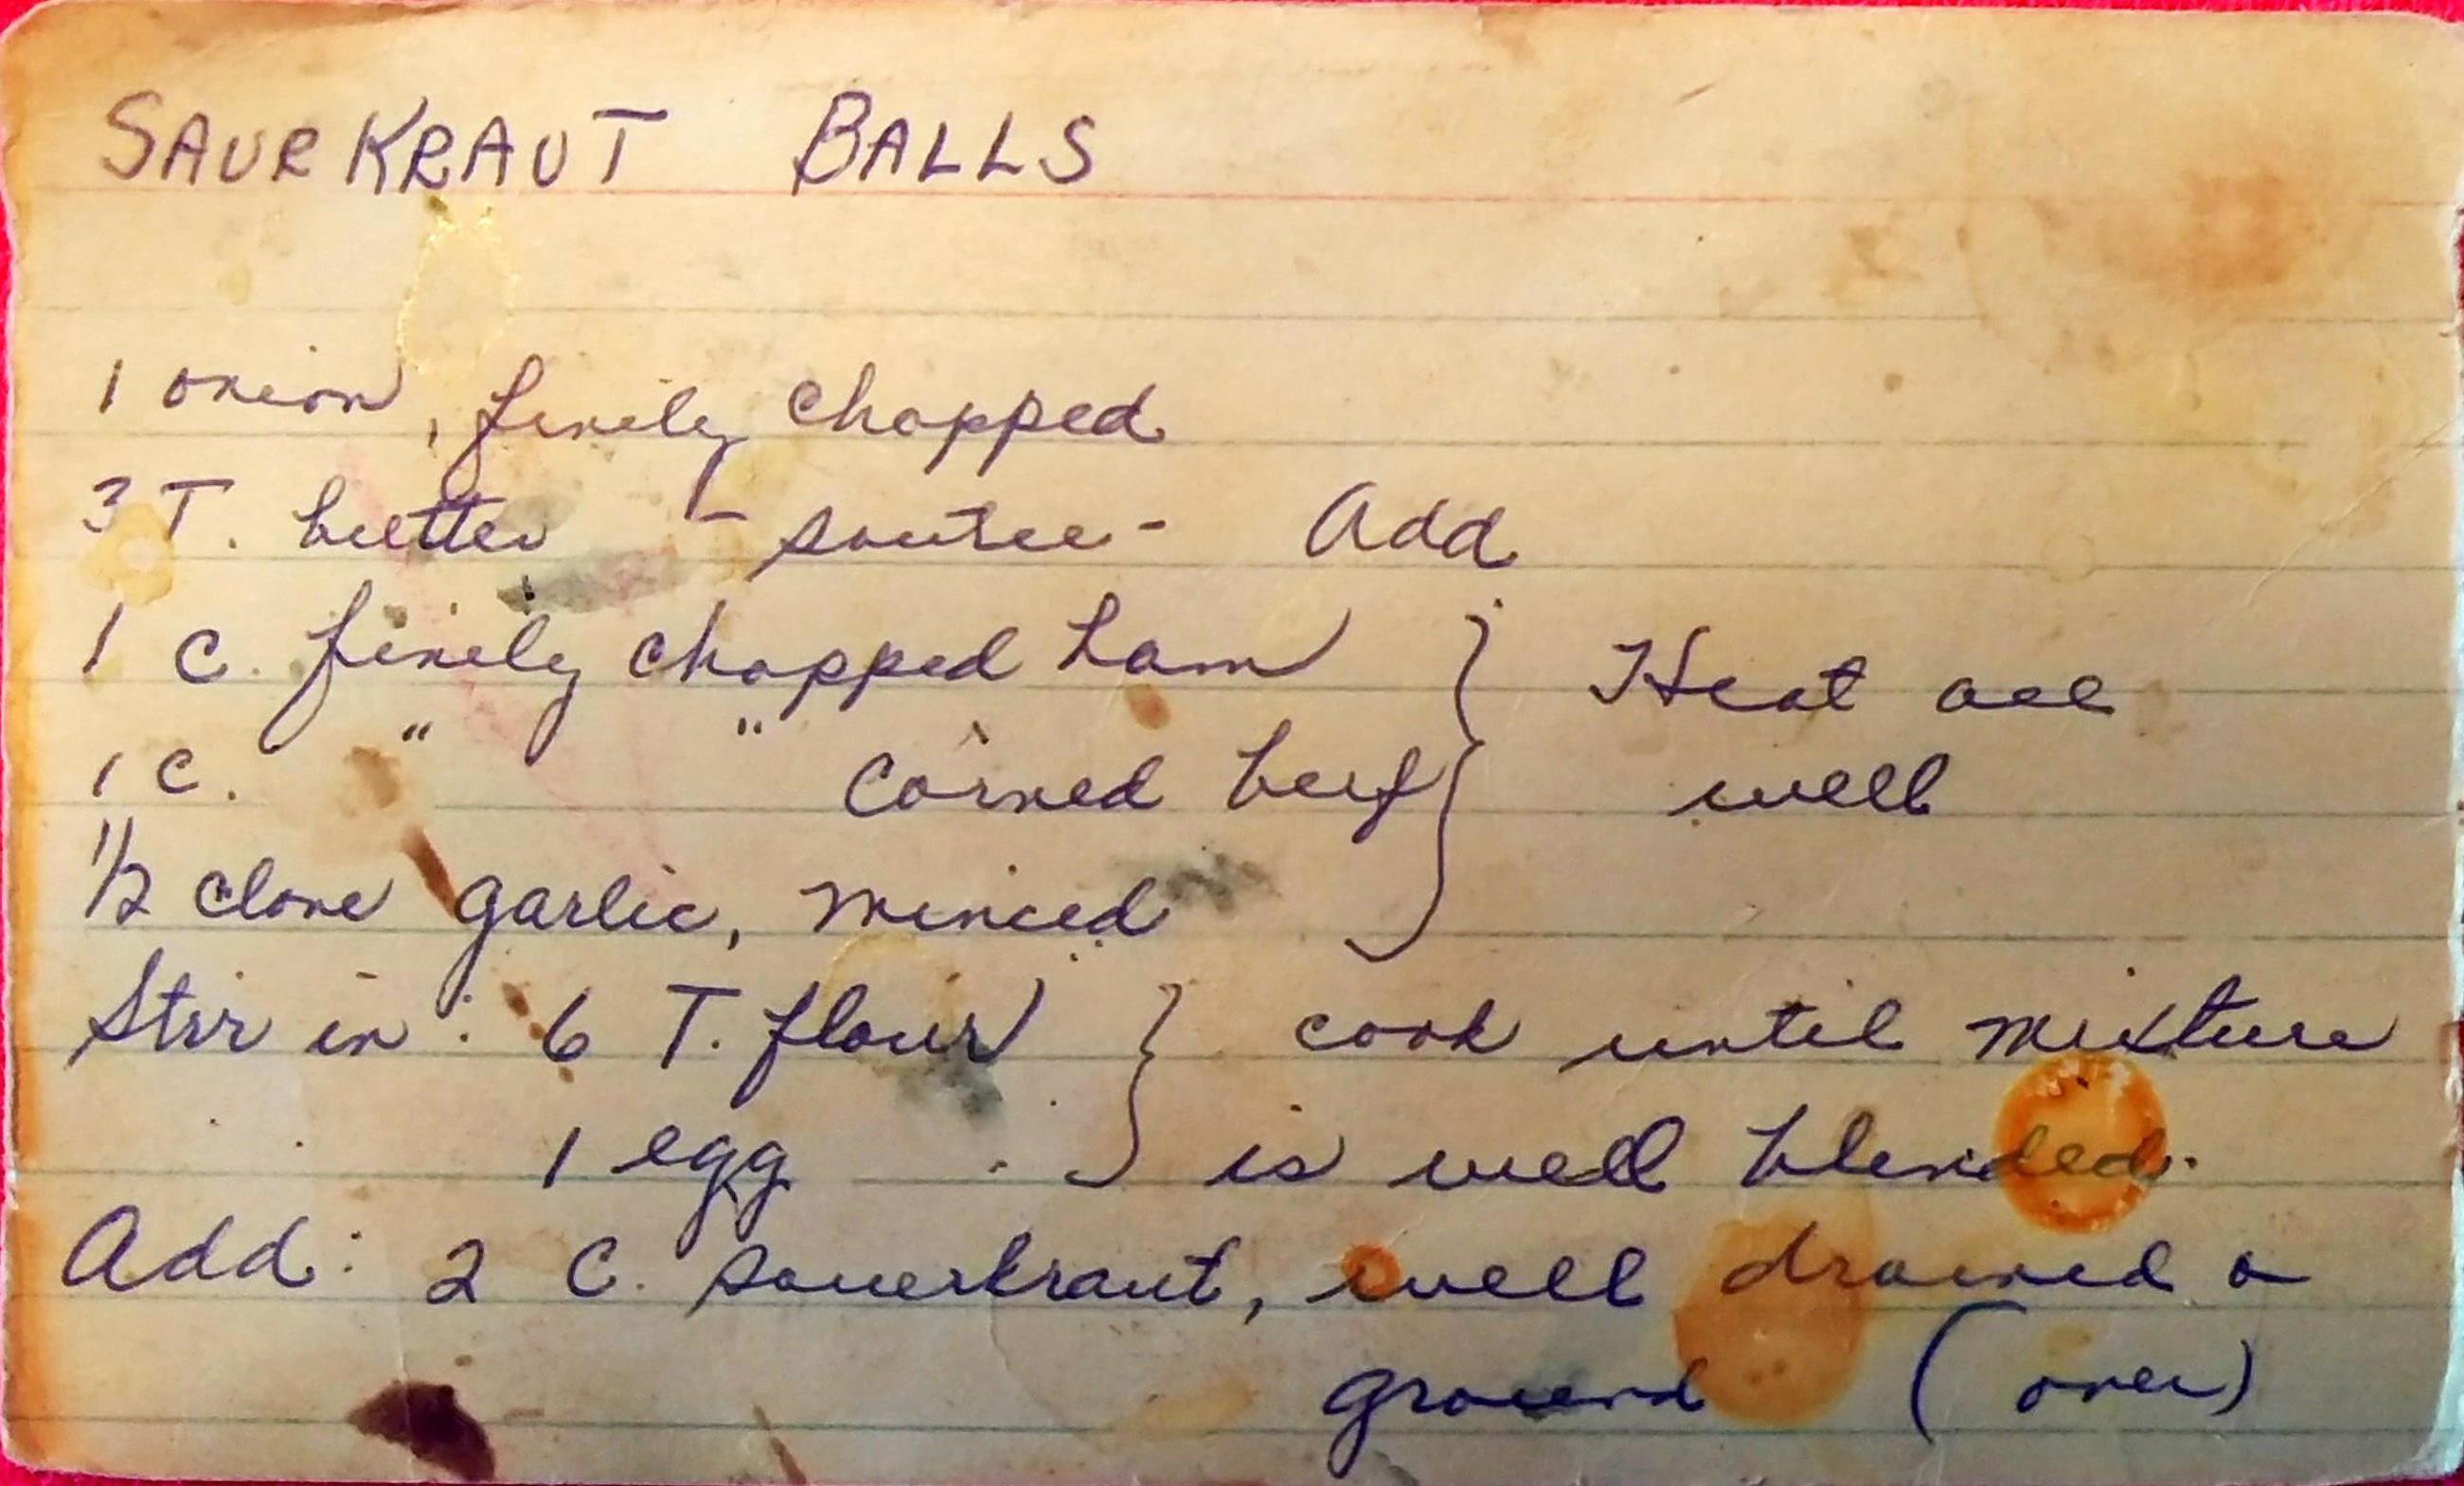 SAURKRAUT BALLS
1 onion, finely chopped
3 T. butter - sautee - Add
1 C. finely chopped ham } Heat all
1 C. " " corned beef } well
1/2 clove garlic, minced
Stir in: 6 T. flour } cook until mixture
1 egg } is well blended.
Add: 2 C. sauerkraut, well drained &
ground (over)